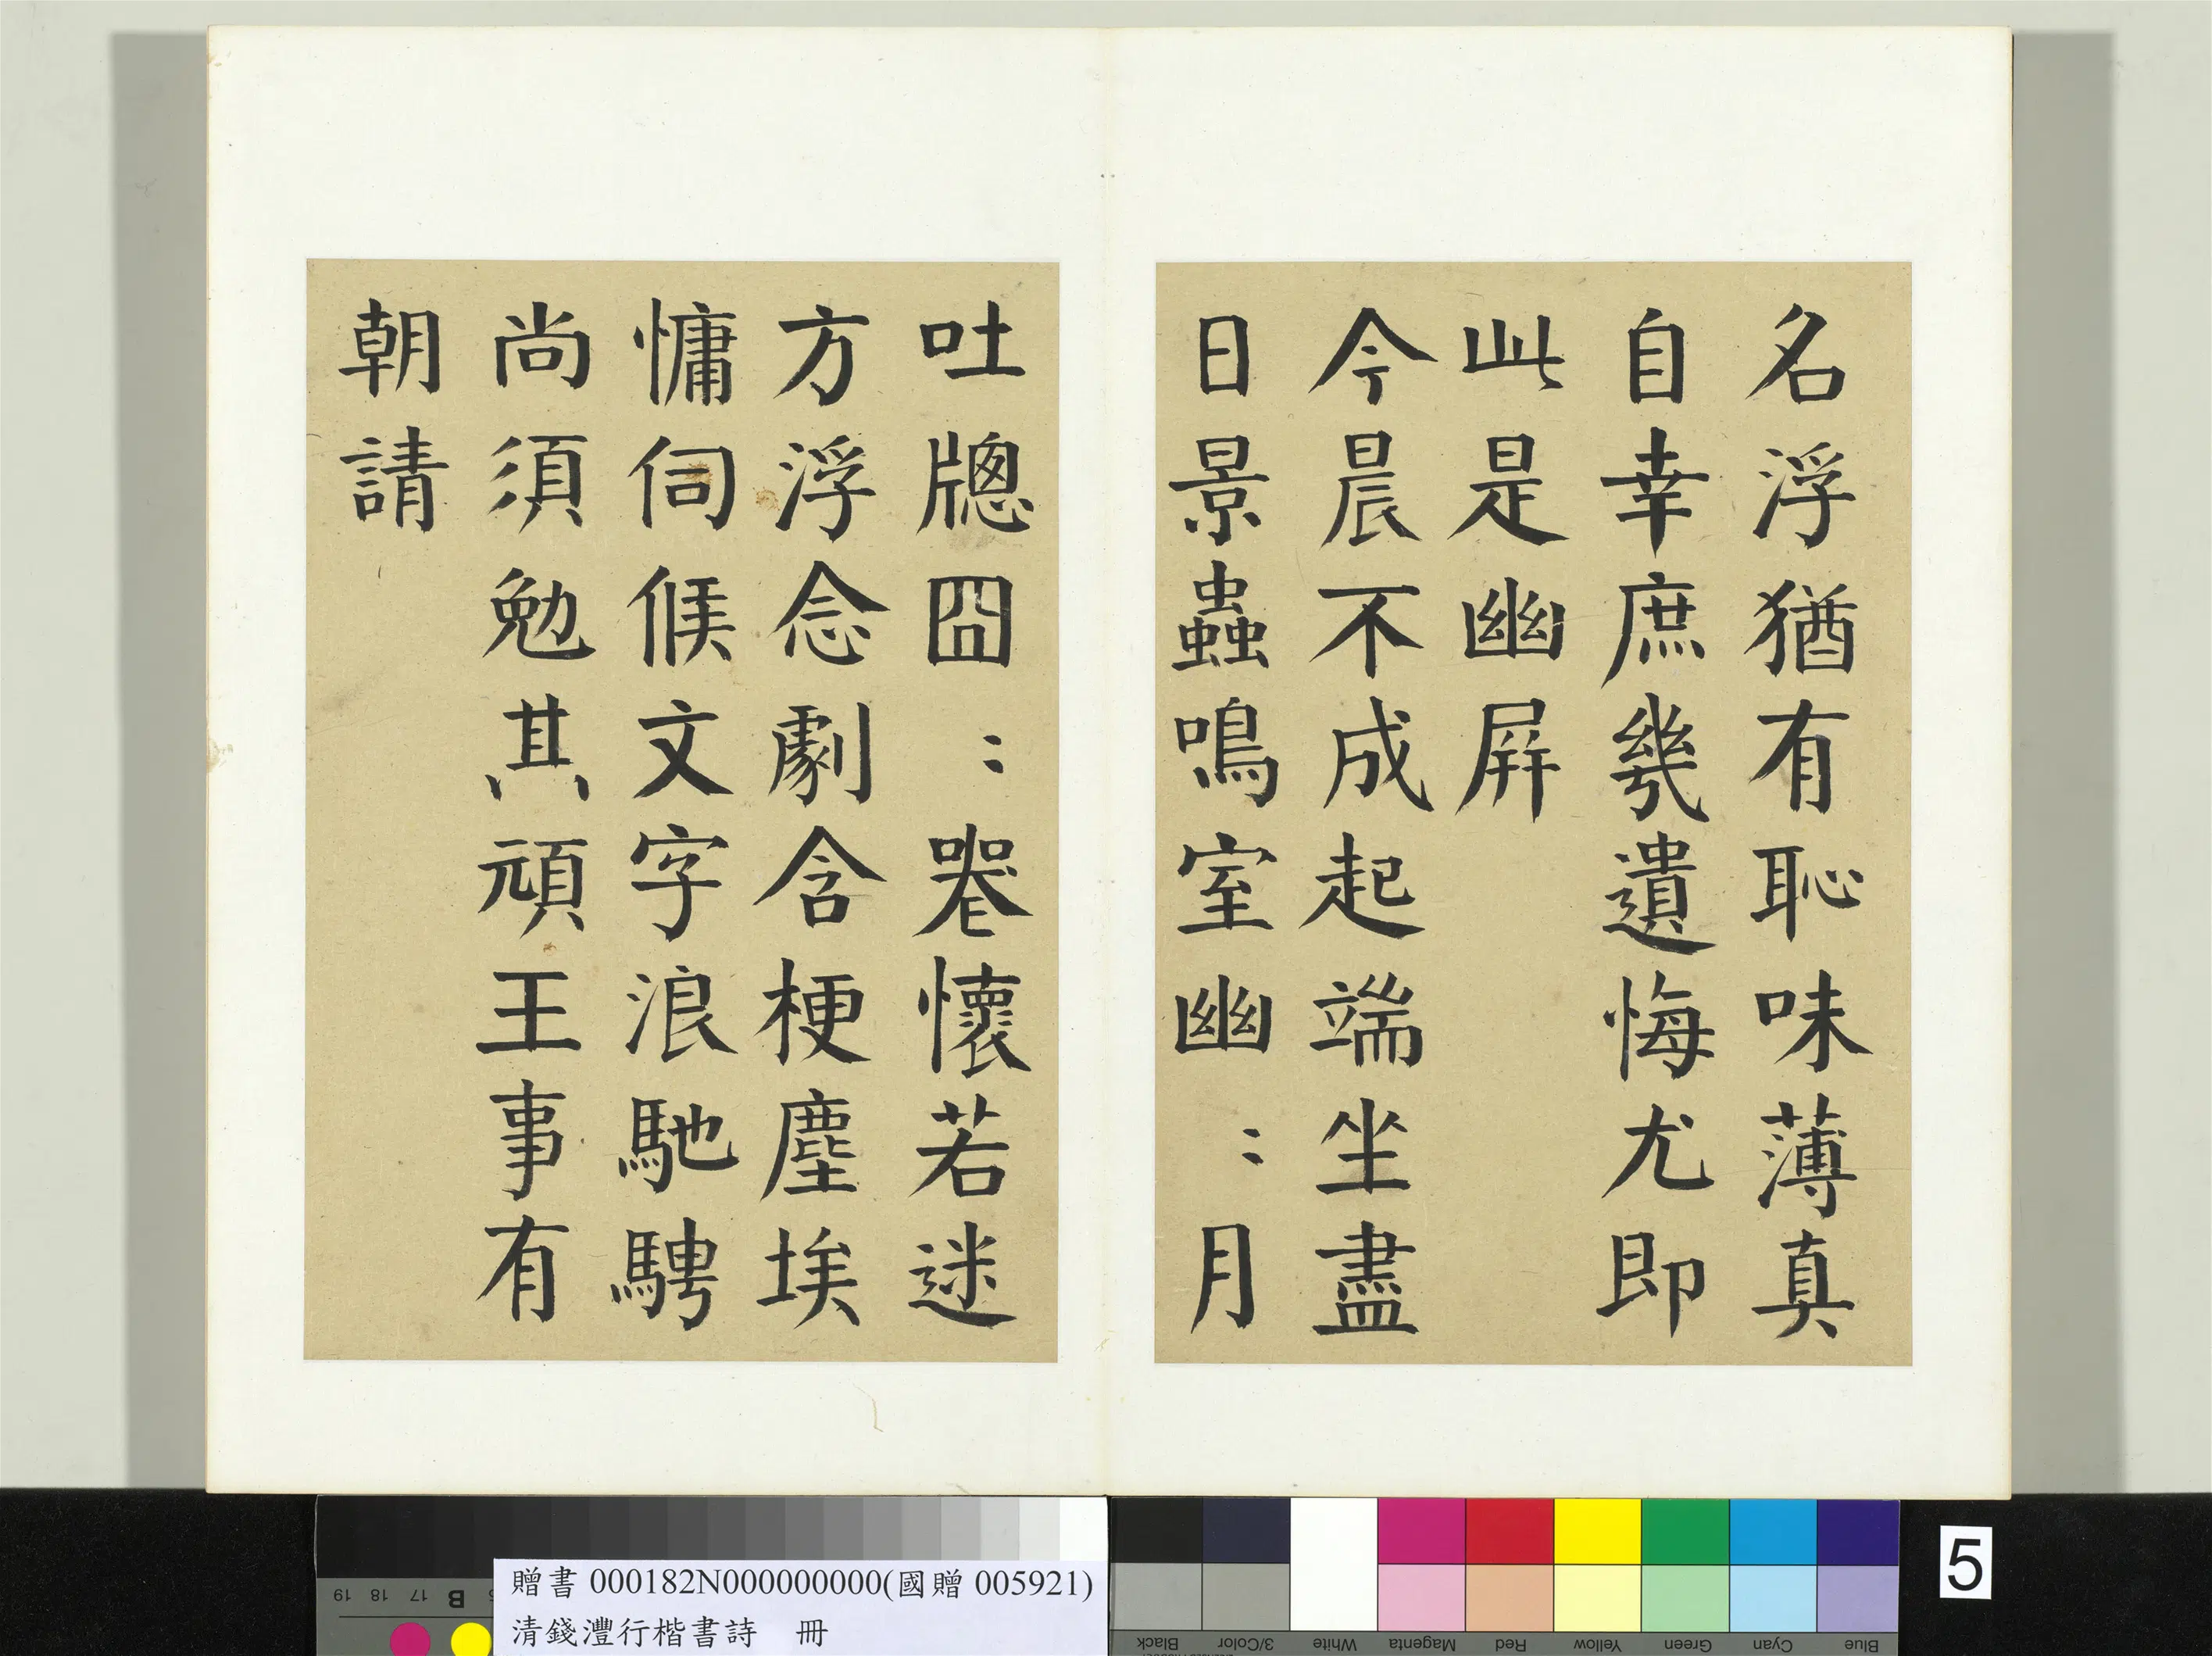 名浮猶有恥味薄真
自幸庶幾遺悔尤即
此是幽屏
今晨不成起端坐盡
日景蟲鳴室幽〻月
吐牕囧〻喪懷若迷
方浮念劇含梗塵埃
慵伺候文字浪馳騁
尚須勉其頑王事有
朝請
贈書 000182N000000000(國贈 005921)
清錢灃行楷書詩 冊
5
Blue Cyan Green Yellow Red Magenta White 3/Color Black
B 17 18 19